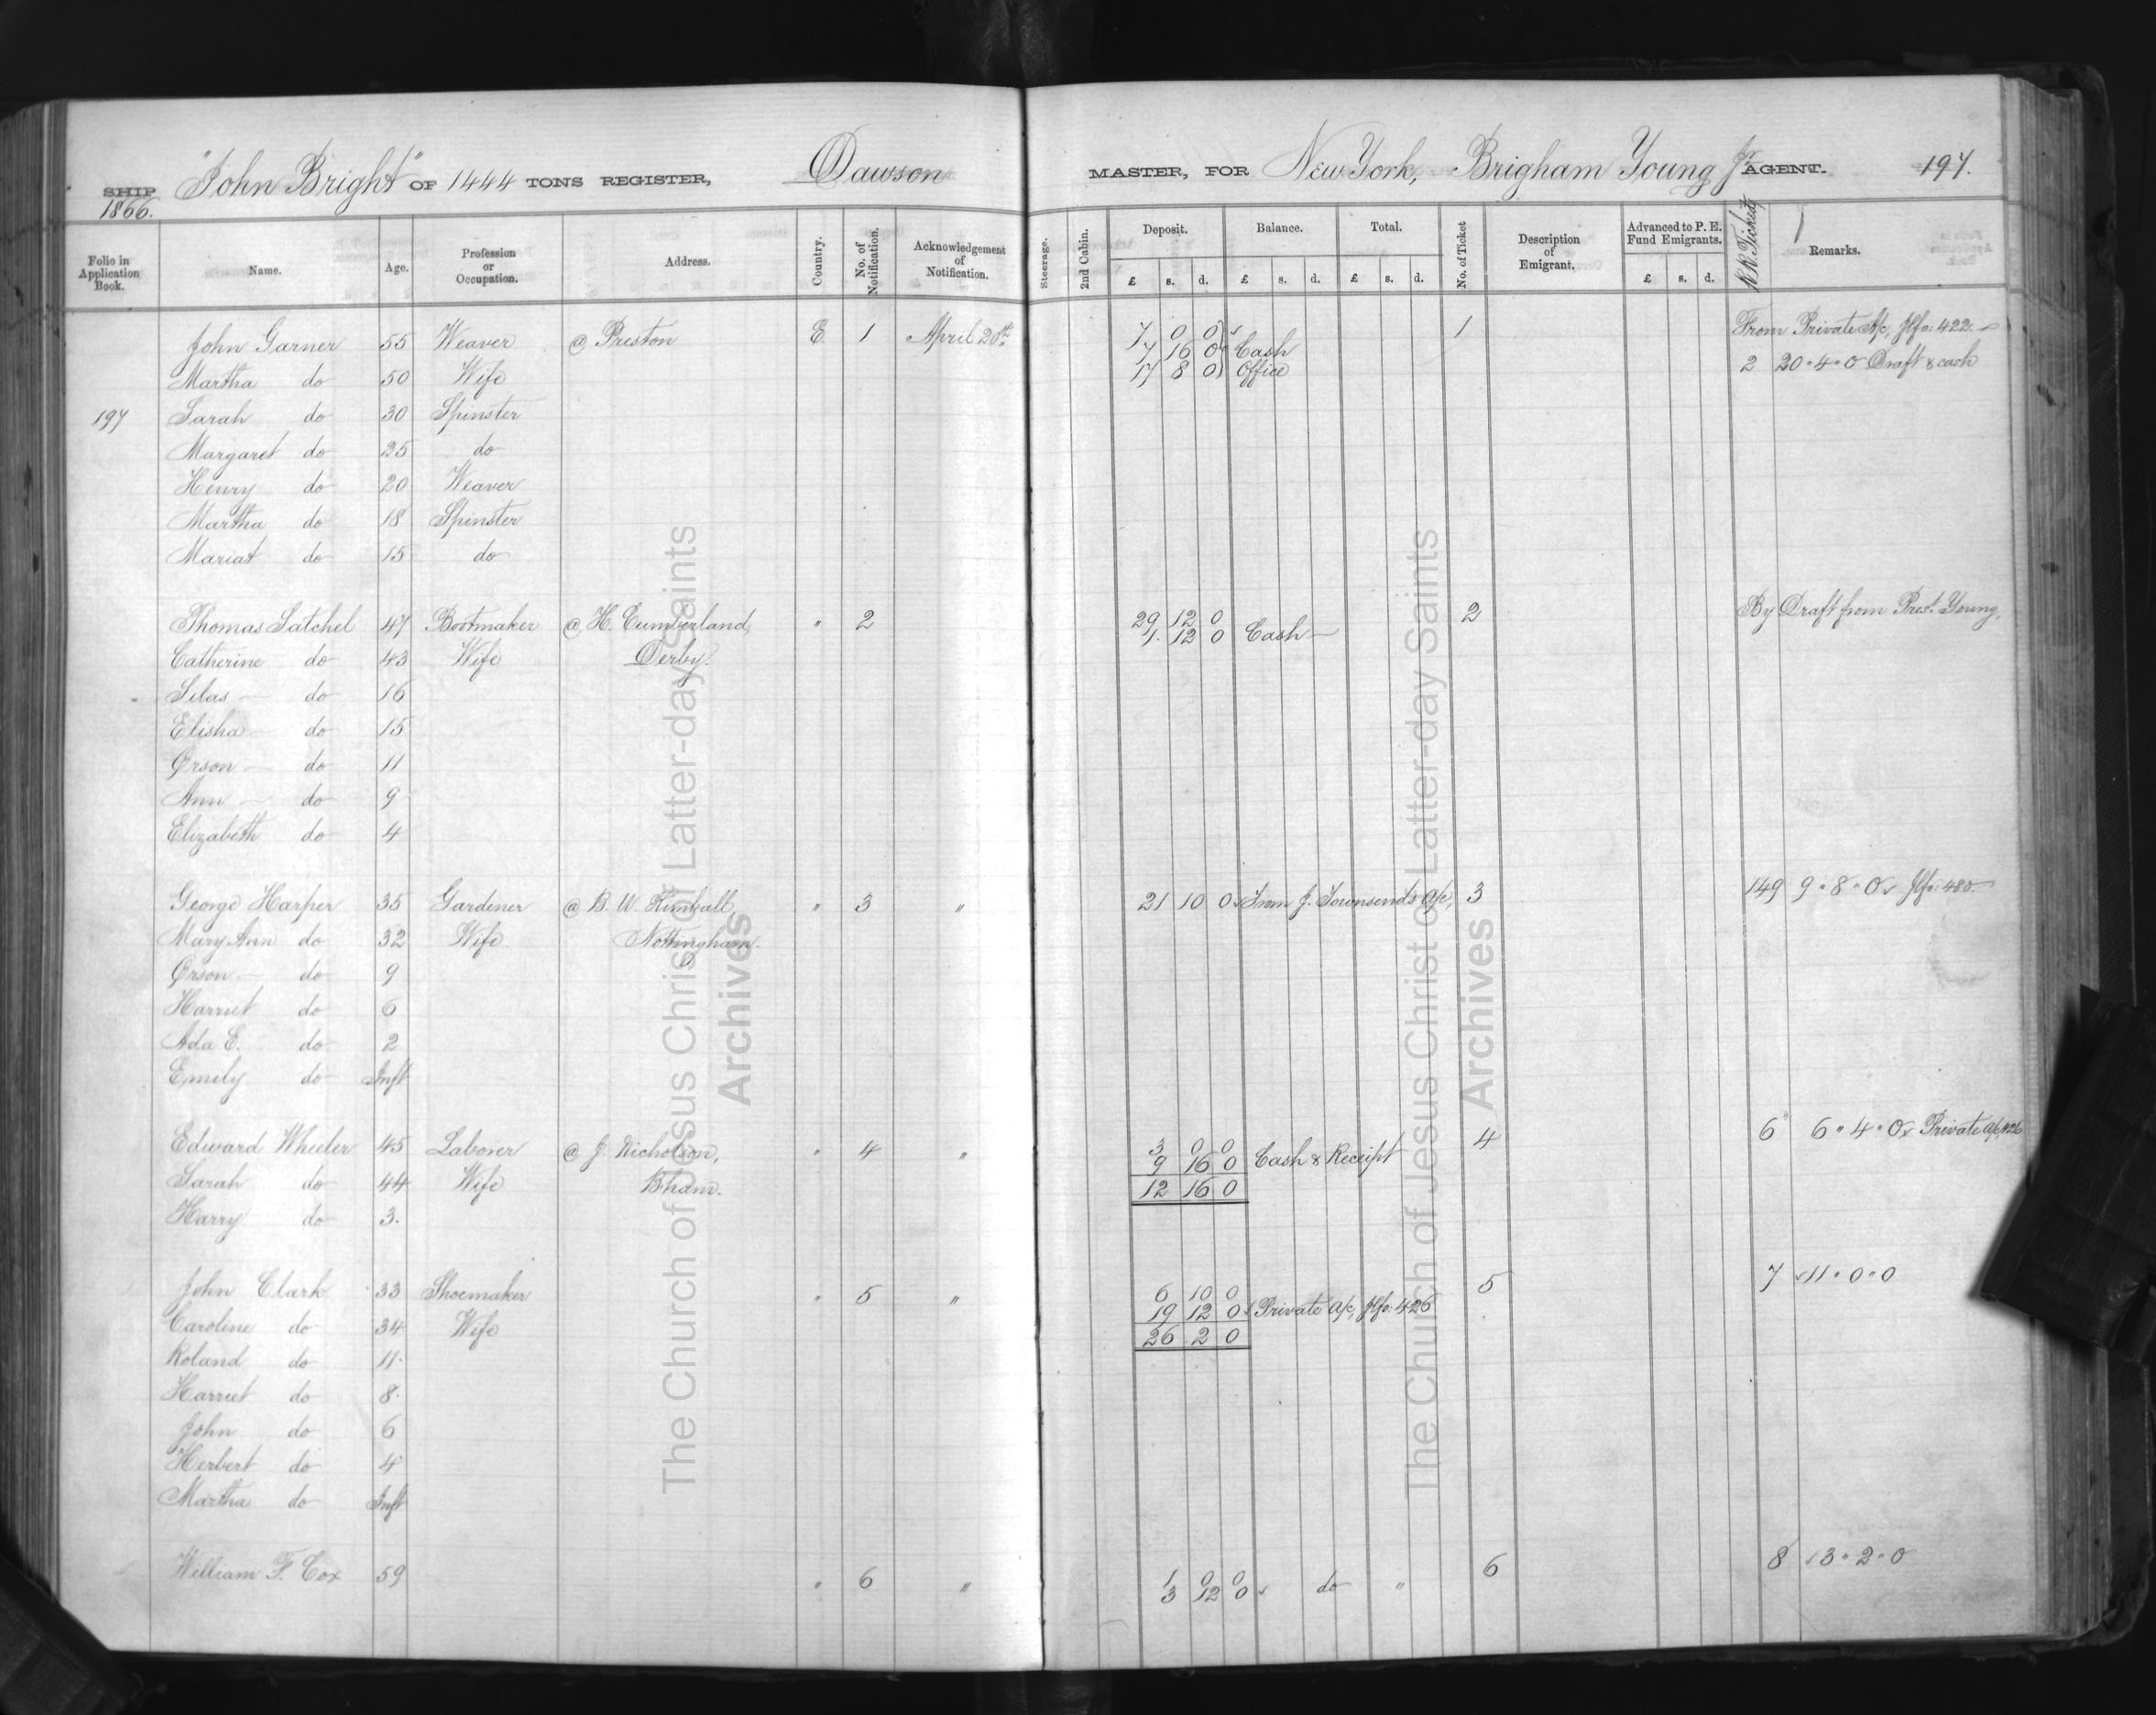 SHIP "John Bright" OF 1444 TONS REGISTER, Dawson MASTER, FOR New York, Brigham Young Jr AGENT. 197.
1866.
Folio in Application Book. Name. Age. Profession or Occupation. Address. Country. No. of Notification. Acknowledgement of Notification. Steerage. 2nd Cabin. Deposit. Balance. Total. No. of Ticket Description of Emigrant. Advanced to P. E. Fund Emigrants. R.R. Tickets Remarks.
£ s. d. £ s. d. £ s. d. £ s. d.
John Garner 55 Weaver @ Preston E 1 April 20th 7 0 0 1 From Private A/c, 422
7 16 0 Cash
Martha do 50 Wife 17 8 0 Office 2 20 " 4 " 0 Draft & cash
197 Sarah do 30 Spinster
Margaret do 25 do
Henry do 20 Weaver
Martha do 18 Spinster
Mariat do 15 do
Thomas Satchel 47 Bootmaker @ H. Cumberland, " 2 29 12 0 2 By Draft from Prest. Young.
1 12 0 Cash
Catherine do 43 Wife Derby.
Silas do 16
Elisha do 15
Orson do 11
Ann do 9
Elizabeth do 4
George Harper 35 Gardener @ B. W. Kimball, " 3 " 21 10 0 From J. Townsend's a/c, 3 149 9 " 8 " 0 480
Mary Ann do 32 Wife Nottingham.
Orson do 9
Harriet do 6
Ada E. do 2
Emily do Inft
Edward Wheeler 45 Laborer @ J. Nicholson, " 4 " 3 0 0 4 6 6 " 4 " 0 Private a/c, 426
9 16 0 Cash & Receipt
Sarah do 44 Wife B'ham. 12 16 0
Harry do 3.
John Clark 33 Shoemaker " 5 " 6 10 0 5 7 11 " 0 " 0
19 12 0 Private a/c, 426
Caroline do 34 Wife 26 2 0
Roland do 11
Harriet do 8
John do 6
Herbert do 4
Martha do Inft
William F. Cox 59 " 6 " 1 0 0 6 8 3 " 2 " 0
3 12 0 do "
The Church of Jesus Christ of Latter-day Saints
Archives
The Church of Jesus Christ of Latter-day Saints
Archives